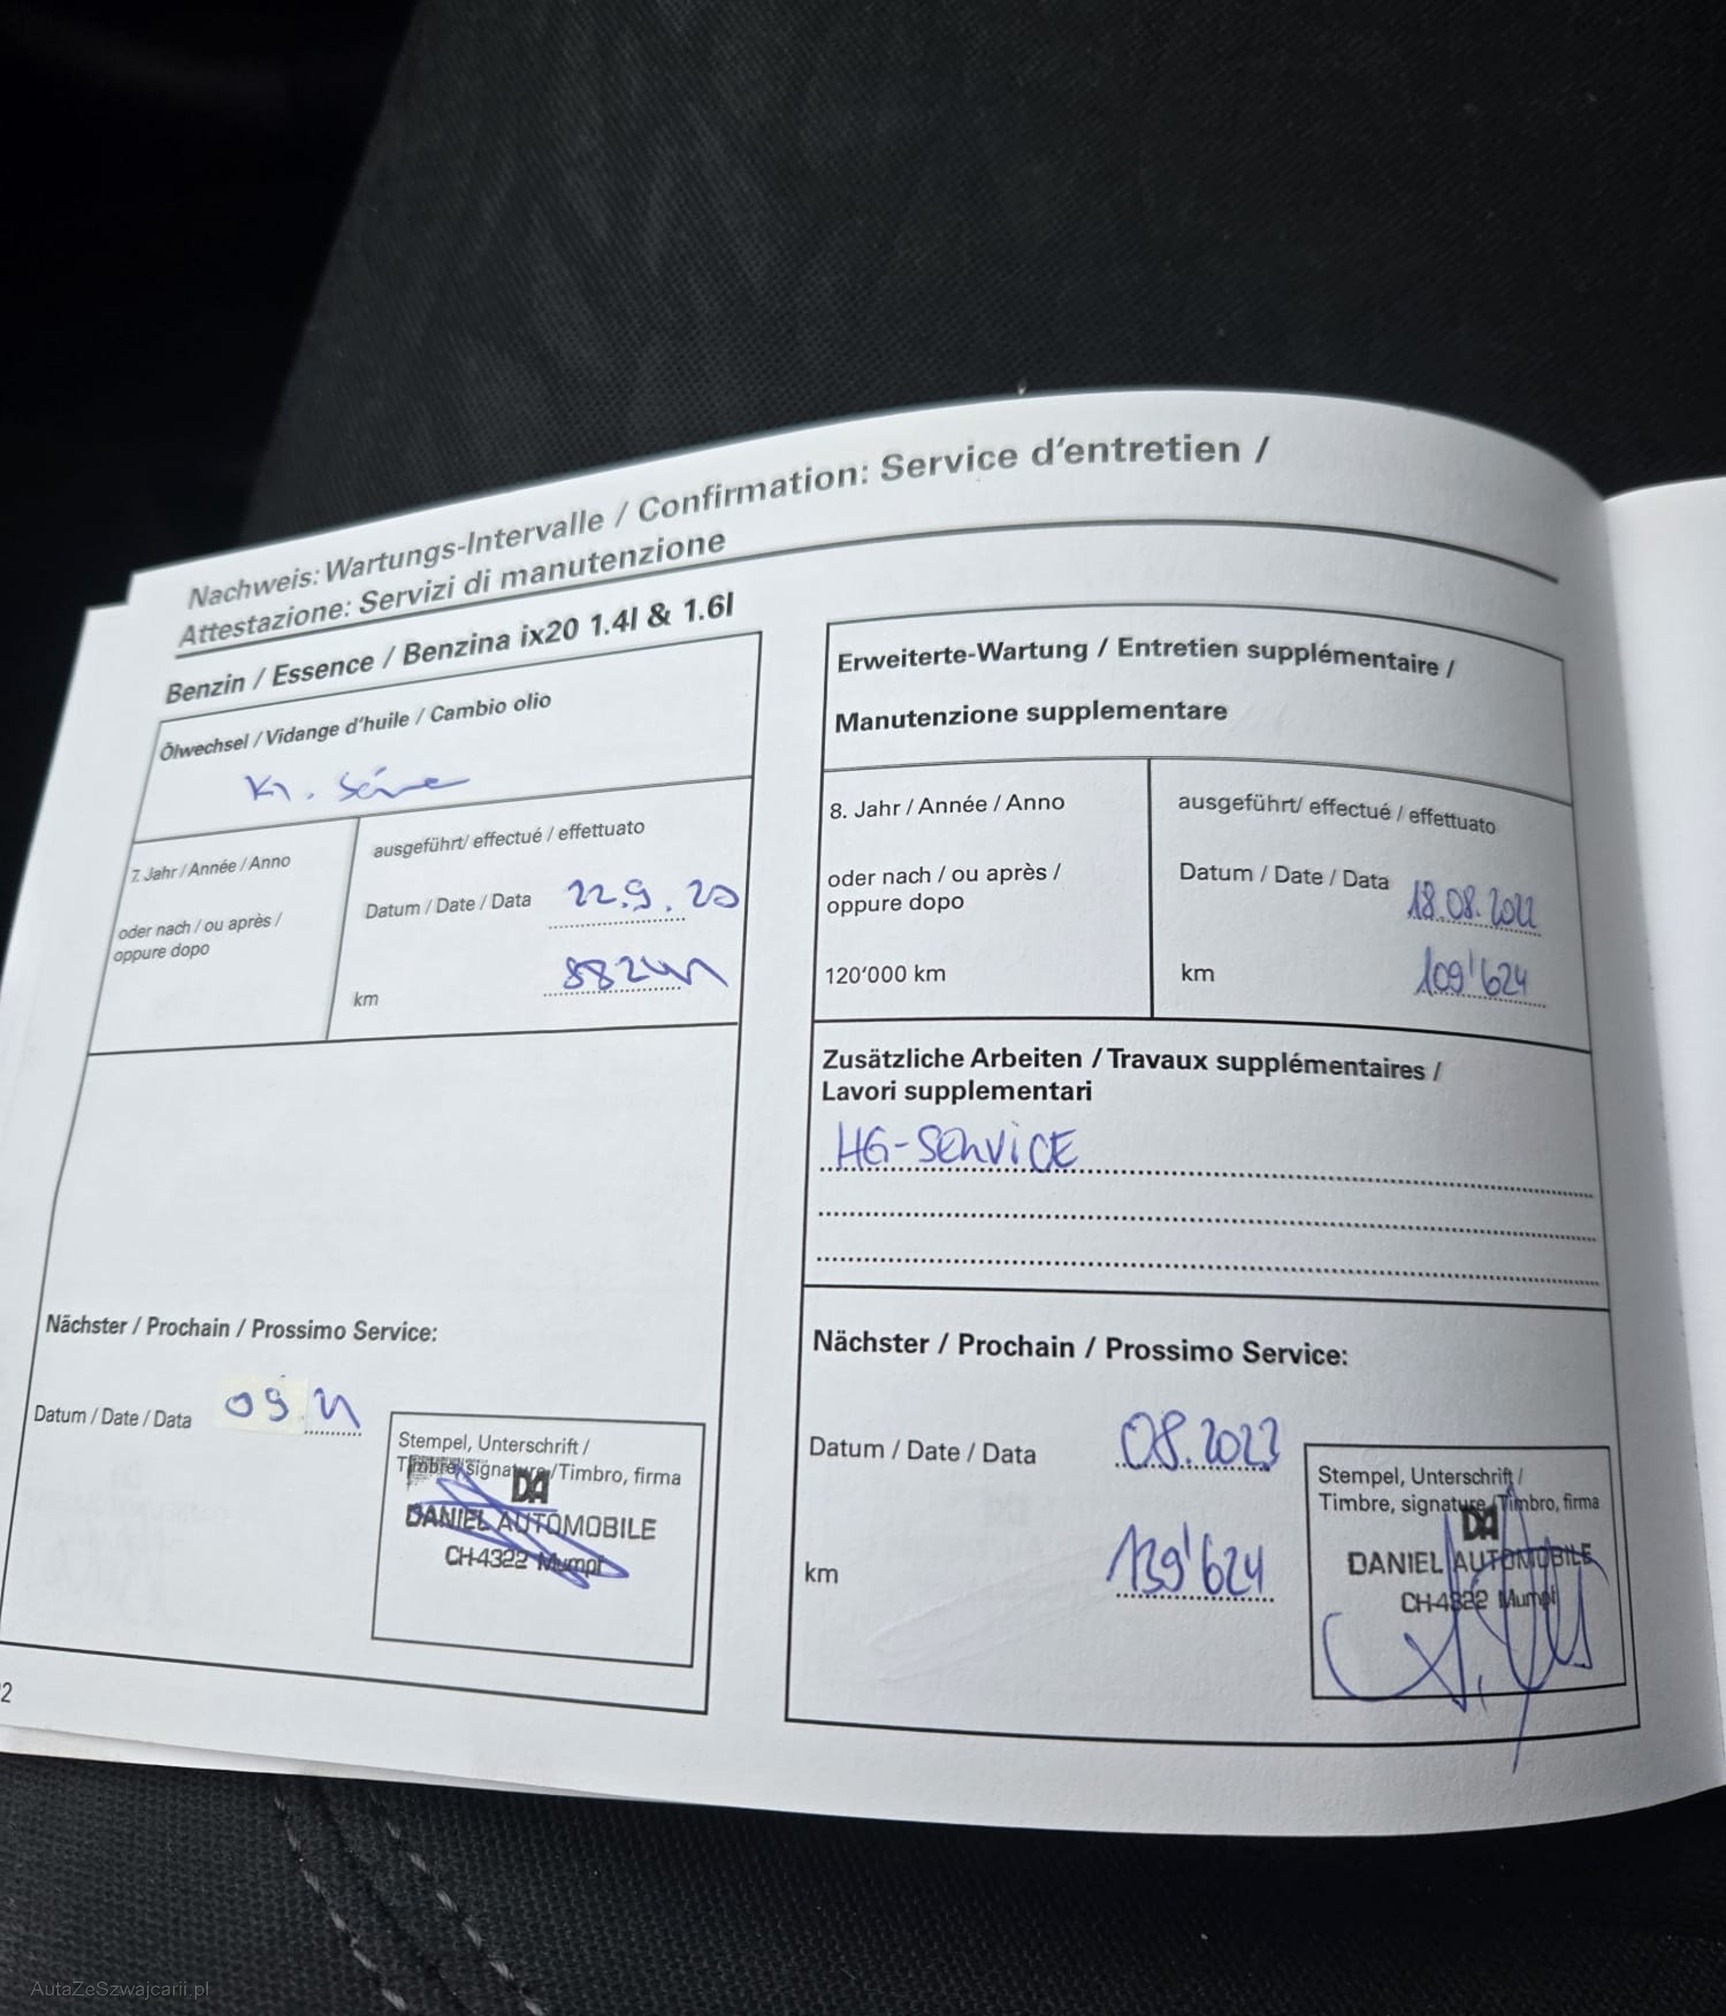 Nachweis: Wartungs-Intervalle / Confirmation: Service d'entretien /
Attestazione: Servizi di manutenzione
Benzin / Essence / Benzina ix20 1.4l & 1.6l
Ölwechsel / Vidange d'huile / Cambio olio
7. Jahr / Année / Anno
oder nach / ou après /
oppure dopo
ausgeführt/ effectué / effettuato
Datum / Date / Data 22.9.20
km
Nächster / Prochain / Prossimo Service:
Datum / Date / Data 09.21
Stempel, Unterschrift /
Timbre, signature / Timbro, firma
DA
DANIEL AUTOMOBILE
CH-4322 Mumpf
Erweiterte-Wartung / Entretien supplémentaire /
Manutenzione supplementare
8. Jahr / Année / Anno
oder nach / ou après /
oppure dopo
120'000 km
ausgeführt/ effectué / effettuato
Datum / Date / Data 18.08.2022
km 109'624
Zusätzliche Arbeiten / Travaux supplémentaires /
Lavori supplementari
HG-SERVICE
Nächster / Prochain / Prossimo Service:
Datum / Date / Data 08.2023
km 139'624
Stempel, Unterschrift /
Timbre, signature / Timbro, firma
DA
DANIEL AUTOMOBILE
CH-4322 Mumpf
2
AutaZeSzwajcarii.pl